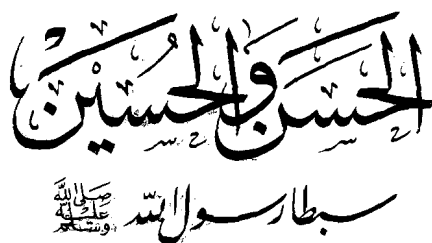 الحَسَن وَالحُسَيْن
سبطا رسول الله صلى الله عليه وسلم